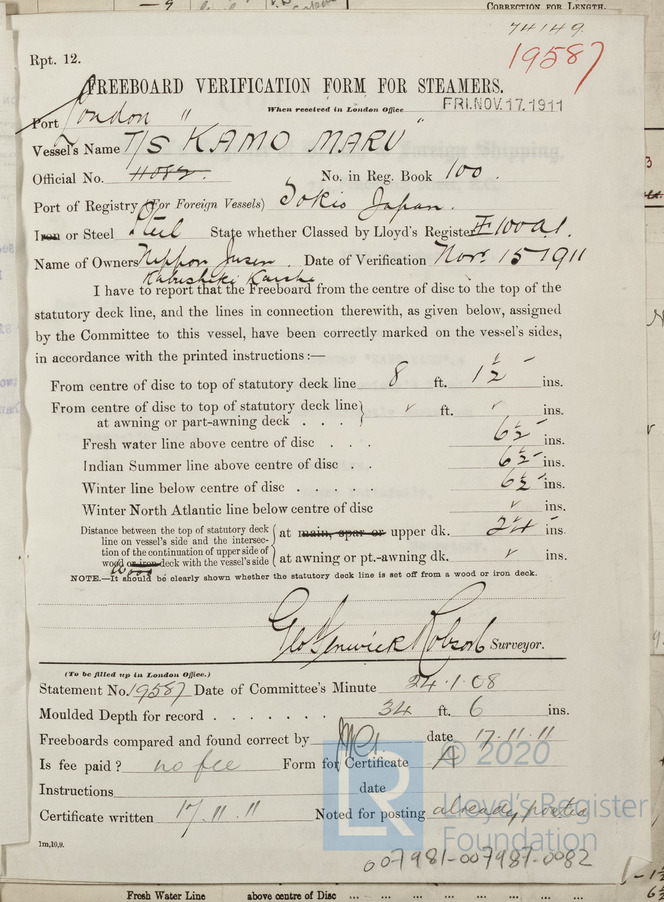 CORRECTION FOR LENGTH.
74149
19587
Rpt. 12.
FREEBOARD VERIFICATION FORM FOR STEAMERS.
Port London " When received in London Office FRI. NOV. 17. 1911
Vessel's Name T/S "KAMO MARU"
Official No. 11082. No. in Reg. Book 100.
Port of Registry (For Foreign Vessels) Tokio Japan.
Iron or Steel Steel State whether Classed by Lloyd's Register 100A1.
Name of Owners Nippon Jusen Date of Verification Nov. 15 1911
Kabushiki Kaisha
I have to report that the Freeboard from the centre of disc to the top of the
statutory deck line, and the lines in connection therewith, as given below, assigned
by the Committee to this vessel, have been correctly marked on the vessel's sides,
in accordance with the printed instructions:—
From centre of disc to top of statutory deck line 8 ft. 1½ ins.
From centre of disc to top of statutory deck line
at awning or part-awning deck . . . ✓ ft. ✓ ins.
Fresh water line above centre of disc . . . 6½ ins.
Indian Summer line above centre of disc . . 6½ ins.
Winter line below centre of disc . . . . . 6½ ins.
Winter North Atlantic line below centre of disc ✓ ins.
Distance between the top of statutory deck
line on vessel's side and the intersec-
tion of the continuation of upper side of
wood or iron deck with the vessel's side
Wood
at main, spar or upper dk. ins.
at awning or pt.-awning dk. ✓ ins.
NOTE.—It should be clearly shown whether the statutory deck line is set off from a wood or iron deck.
Geo Fenwick Robson Surveyor.
(To be filled up in London Office.)
Statement No. 19587 Date of Committee's Minute 24.1.08
Moulded Depth for record . . . . . . . 34 ft. 6 ins.
Freeboards compared and found correct by date 17.11.11
Is fee paid? no fee Form for Certificate A
Instructions date
Certificate written 17.11.11 Noted for posting already posted
1m,10,9.
LR © 2020
Lloyd's Register
Foundation
007981-007987-0082
Fresh Water Line above centre of Disc ... ... ... ... ... ...